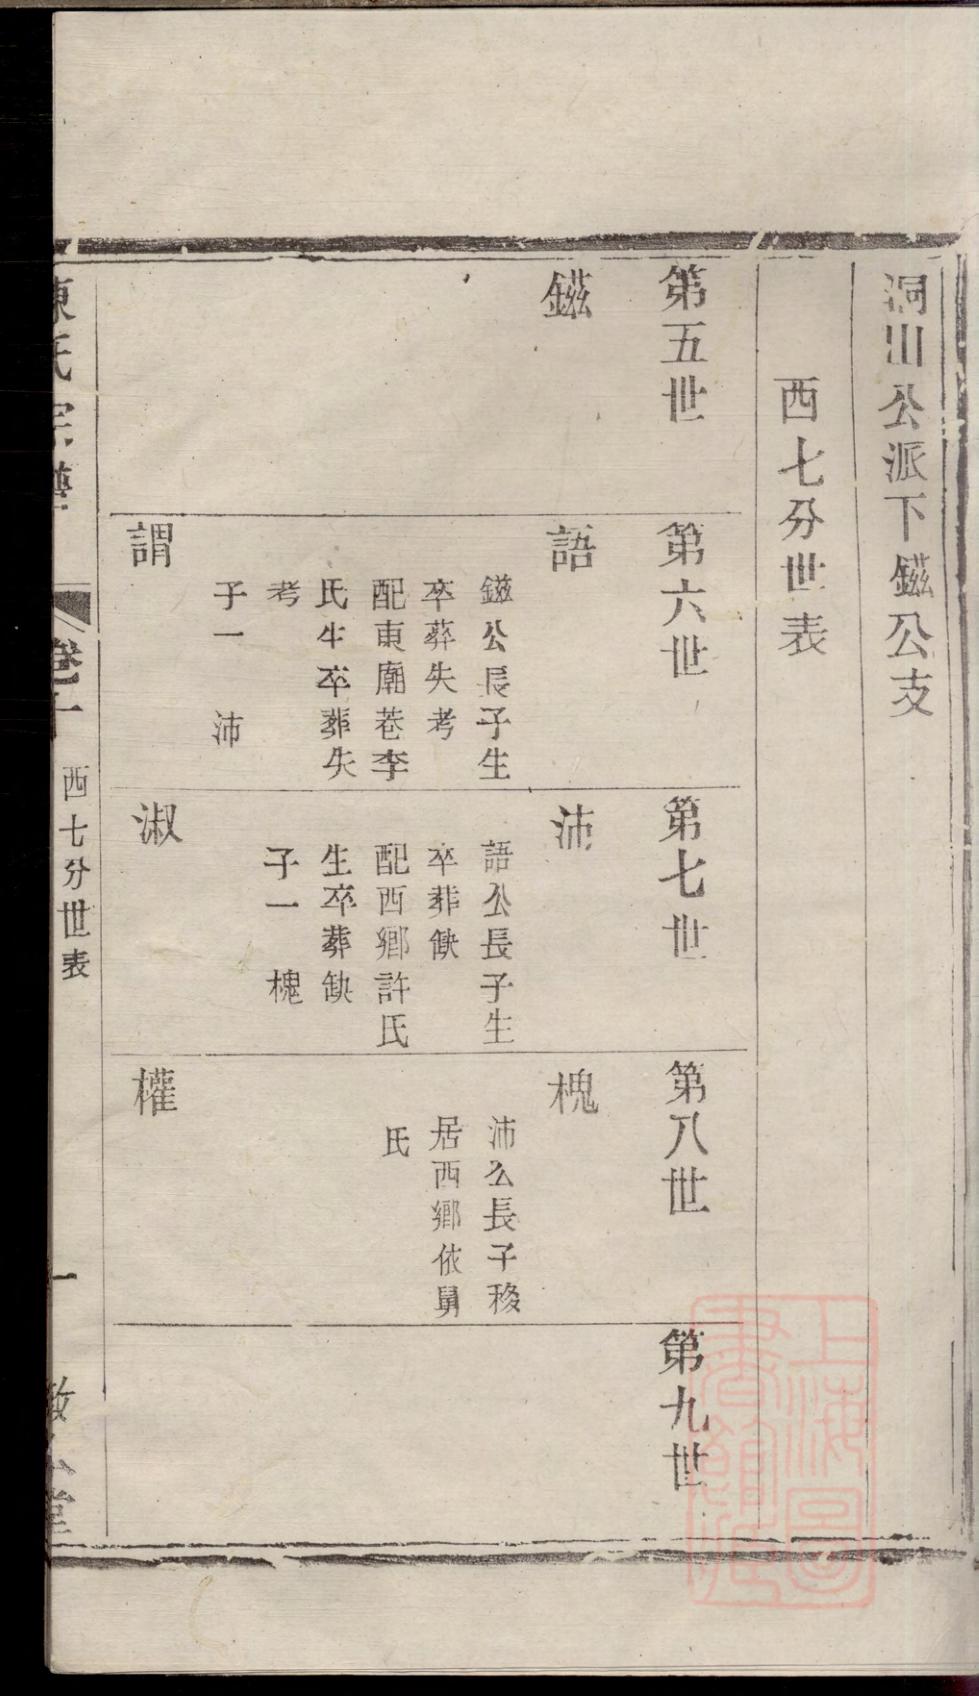 洞山公派下鎡公支
西七分世表
第五世
鎡
第六世
語
鎡公長子生
卒葬失考
配東廟巷李
氏生卒葬失
考
子一　沛
謂
第七世
沛
語公長子生
卒葬缺
配西鄉許氏
生卒葬缺
子一　槐
淑
第八世
槐
沛公長子移
居西鄉依舅
氏
權
第九世
陳氏宗譜
西七分世表
一
上海圖書館藏